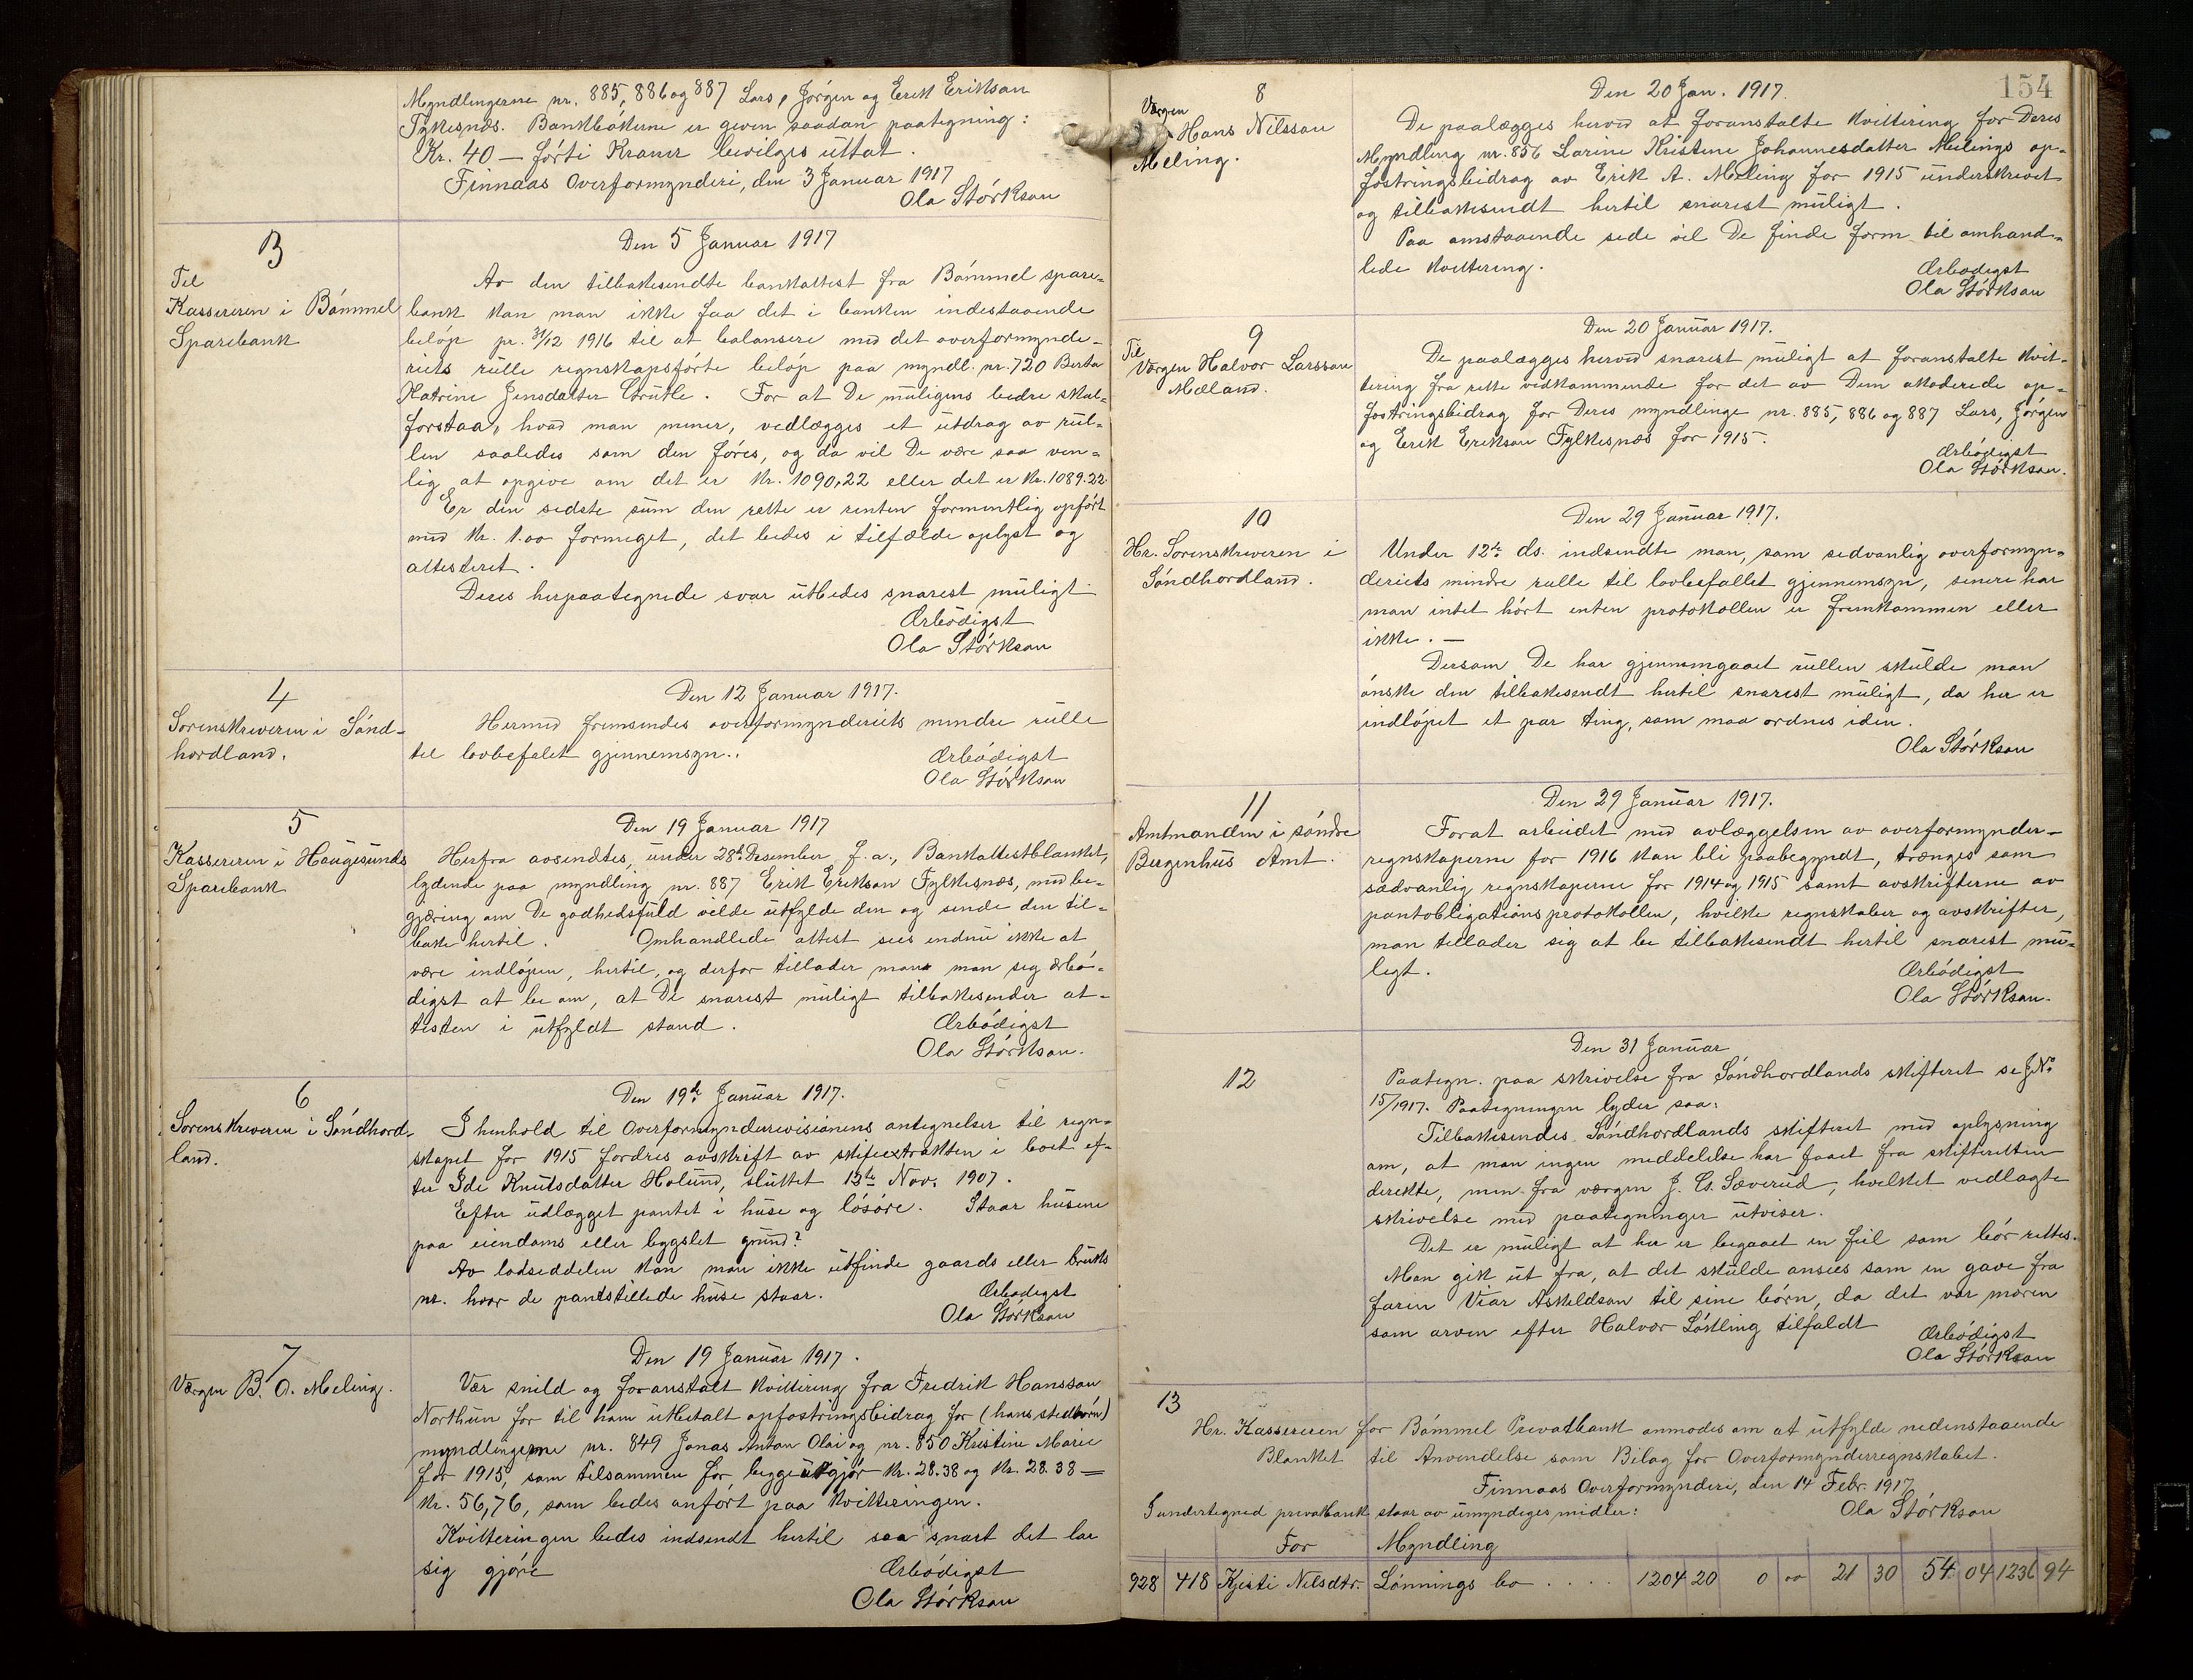 Myndlingerne nr. 885, 886 og 887 Lars, Jörgen og Erik Erikson
Fykesnæs. Bankbökerne er given saadan paategning:
Kr. 40 — förti Kroner bevilges uttat.
Finnaas Overformynderi, den 3 Januar 1917
Ola Störkson
3
Til
Kassereren i Bömmel
Sparebank
Den 5 Januar 1917
Av den tilbakesendte bankattest fra Bömmel spare-
bank kan man ikke faa det i banken indestaaende
belöp pr. 31/12 1916 til at balansere med det overformynde-
riets rulle regnskapsförte belöp paa myndl. nr. 720 Berta
Katrine Jensdatter Grutle. For at De muligens bedre skal
forstaa, hvad man mener, vedlægges et utdrag av rul-
len saaledes som den föres, og da vil De være saa ven-
lig at opgive om det er Kr. 1090,22 eller det er Kr. 1089.22.
Er den sidste sum den rette er renten formentlig opfört
med Kr. 1.00 formeget, det bedes i tilfælde oplyst og
attesteret.
Deres herpaategnede svar utbedes snarest muligt
Ærbödigst
Ola Störkson
4
Sorenskriveren i Sönd-
hordland.
Den 12 Januar 1917.
Hermed fremsendes overformynderiets mindre rulle
til lovbefalet gjennemsyn.
Ærbödigst
Ola Störkson
5
Kassereren i Haugesunds
Sparebank
Den 19 Januar 1917
Herfra avsendtes under 28de Desember f. a., Bankattestblanket,
lydende paa myndling nr. 887 Erik Erikson Fylkesnæs, med be-
gjæring om De godhedsfuld vilde utfylde den og sende den til-
bake hertil. Omhandlede attest sees endnu ikke at
være indlöpen, hertil, og derfor tillader man man sig ærbö-
digst at be om, at De snarest muligt tilbakesender at-
testen i utfyldt stand.
Ærbödigst
Ola Störkson.
6
Sorenskriveren i Söndhord-
land.
Den 19de Januar 1917.
I henhold til Overformynderrevisionens antegnelser til regn-
skapet for 1915 fordres avskrift av skifteextrakten i boet ef-
ter Ide Knutsdatter Holund, sluttet 13de Nov. 1907.
Efter udlægget pantet i huse og lösöre. Staar husene
paa eiendoms eller bygslet grund?
Av lodseddelen kan man ikke utfinde gaards eller bruks
nr. hvor de pantstillede huse staar.
Ærbödigst
Ola Störkson
7
Værgen B. O. Meling.
Den 19 Januar 1917.
Vær snild og foranstalt kvittering fra Fredrik Hansson
Northun for til ham utbetalt opfostringsbidrag for (hans stedbörn)
myndlingerne nr. 849 Jonas Anton Olai og nr. 850 Kristine Marie
for 1915, som tilsammen for begge utgjör Kr. 28.38 og Kr. 28.38 =
Kr. 56,76, som bedes anfört paa kvitteringen.
Kvitteringen bedes indsendt hertil saa snart det lar
sig gjöre
Ærbödigst
Ola Störkson
154
8
Værgen
Hans Nilsson
Meling.
Den 20 Jan. 1917.
De paalægges herved at foranstalte kvittering for Deres
Myndling nr. 856 Larine Kristine Johannesdatter Melings op-
fostringsbidrag av Erik A. Meling for 1915 underskrevet
og tilbakesendt hertil snarest muligt.
Paa omstaaende side vil De finde form til omhand-
lede kvittering.
Ærbödigst
Ola Störkson
9
Til
Værgen Halvor Larsson
Mæland.
Den 20 Januar 1917.
De paalægges herved snarest muligt at foranstalte kvit-
tering fra rette vedkommende for det av Dem akoderede op-
fostringsbidrag for Deres myndlinge nr. 885, 886 og 887 Lars, Jörgen
og Erik Erikson Fylkesnæs for 1915.
Ærbödigst
Ola Störkson.
10
Hr. Sorenskriveren i
Söndhordland.
Den 29 Januar 1917.
Under 12te ds. indsendte man, som sedvanlig overformyn-
deriets mindre rulle til lovbefallet gjennemsyn, senere har
man intet hört enten protokollen er fremkommen eller
ikke. —
Dersom De har gjennemgaaet rullen skulde man
önske den tilbakesendt hertil snarest muligt, da her er
indlöpet et par ting, som maa ordnes iden.
Ola Störkson
11
Amtmanden i söndre
Bergenhus Amt.
Den 29 Januar 1917.
Forat arbeidet med avlæggelsen av overformynder-
regnskaperne for 1916 kan bli paabegyndt, trænges som
sædvanlig regnskaperne for 1914 og 1915 samt avskrifterne av
pantobligationsprotokollen, hvilke regnskaber og avskrifter,
man tillader sig at be tilbakesendt hertil snarest mu-
ligt.
Ærbödigst
Ola Störkson.
12
Den 31 Januar
Paategn. paa skrivelse fra Söndhordlands skifteret se J No
15/1917. Paategningen lyder saa:
Tilbakesendes Söndhordlands skifteret med oplysning
om, at man ingen meddelelse har faaet fra skifteretten
direkte, men fra værgen J. G. Sæverud, hvilket vedlagte
skrivelse med paategninger utviser.
Det er muligt at her er begaaet en feil som bör rettes.
Man gik ut fra, at det skulde ansees som en gave fra
faren Viar Askeldson til sine börn, da det var moren
som arven efter Halvor Löstling tilfaldt
Ærbödigst
Ola Störkson
13
Hr. Kassereren for Bömmel Privatbank anmodes om at utfylde nedenstaaende
Blanket til Anvendelse som Bilag for Overformynderregnskabet.
Finnaas Overformynderi, den 14 Febr. 1917
Ola Störkson
I undertegned privatbank staar av umyndiges midler:
For Myndling
928 418 Kjesti Nilsdtr. Lönnings bo . . . . 1204 20 0 00 21 30 54 04 1236 94